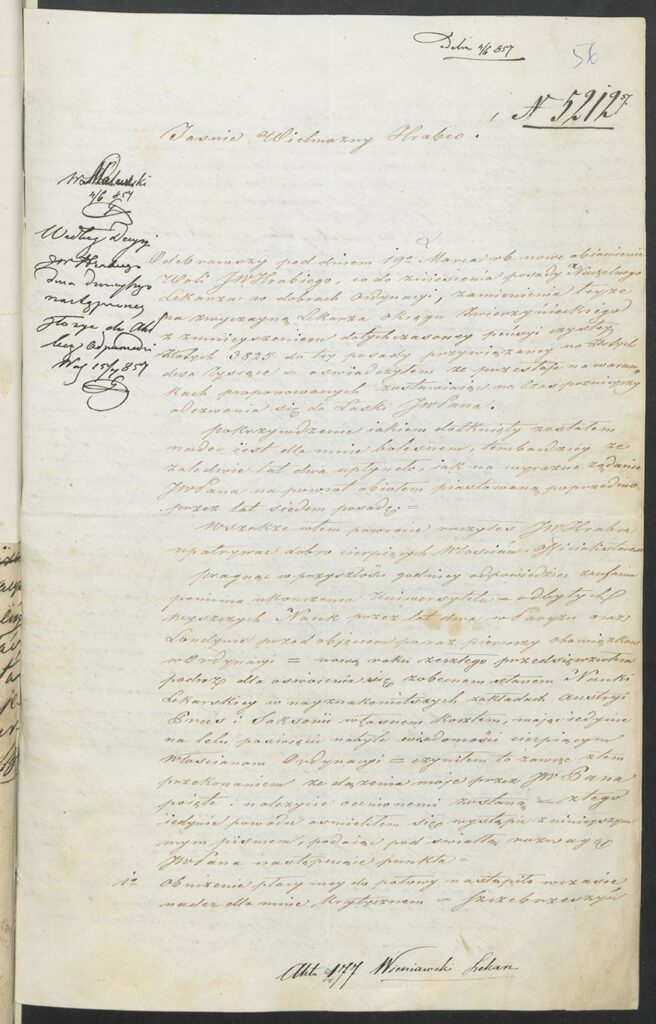 Debia 4/6 857
56
N 5212
Jaśnie Wielmożny Hrabio!
4/6 857
Według Decyzyi
JW Hrabiego
dwa
następnej
do Akt
15/7 857
Odebrawszy pod dniem 19º Marca rb. nowe objawienie
Woli JWHrabiego, co do zniesienia posady Naczelnego
Lekarza w dobrach Ordynacyi, zamienienia teyże
na zwyczayną Lekarza Okręgu Zwierzynieckiego
z zmnieyszeniem dotychczasowey pensyi czystey
Złotych 3825 do tey posady przywiązaney na Złotych
dwa tysiące = oświadczyłem że przestaję na warun
kach proponowanych zostawiając na czas poznieyszy
odezwania się do Łaski JWPana.
Pokrzywdzenie jakiem dotknięty zostałem
nader jest dla mnie bolesnem, tembardziey że
zaledwie lat dwa upłynęło, jak na wyraźne żądanie
JWPana na powrót objąłem piastowaną poprzednio
przez lat siedem posadę. =
Wszakże w tem powrocie raczyłeś JWHrabio
upatrywać dobro cierpiących Włościan i Officialistów
pragnąc w przyszłości godniey odpowiedzieć zaufa
ukończeniu Uniwersytetu = odbytych
wyższych Nauk przez lat dwa w Paryżu oraz
Londynie przed objęciem po raz pierwszy obowiązków
w Ordynacyi = nową roku zeszłego przedsięwziąłem
podróż dla oswojenia się z obecnem stanem Nauki
Lekarskiey w nayznakomitszych zakładach Austryi
Prus i Saksonii własnem kosztem, mając jedynie
na celu poświęcić nabyte wiadomości cierpiącym
Włościanom Ordynacyi = czyniłem to zawsze z tem
przekonaniem że dążenia moje przez JWPana
pojęte i należycie ocenionemi zostaną = z tego
jedynie powodu ośmieliłem się wystąpić z ninieyszym
mym pismem, podając pod światłą rozwagę
JWPana następujące punkta =
1º Obniżenie płacy mey do połowy nastąpiło w czasie
nader dla mnie krytycznem = Szczebrzeszyn
Akta 177 Wieniawski Lekarz